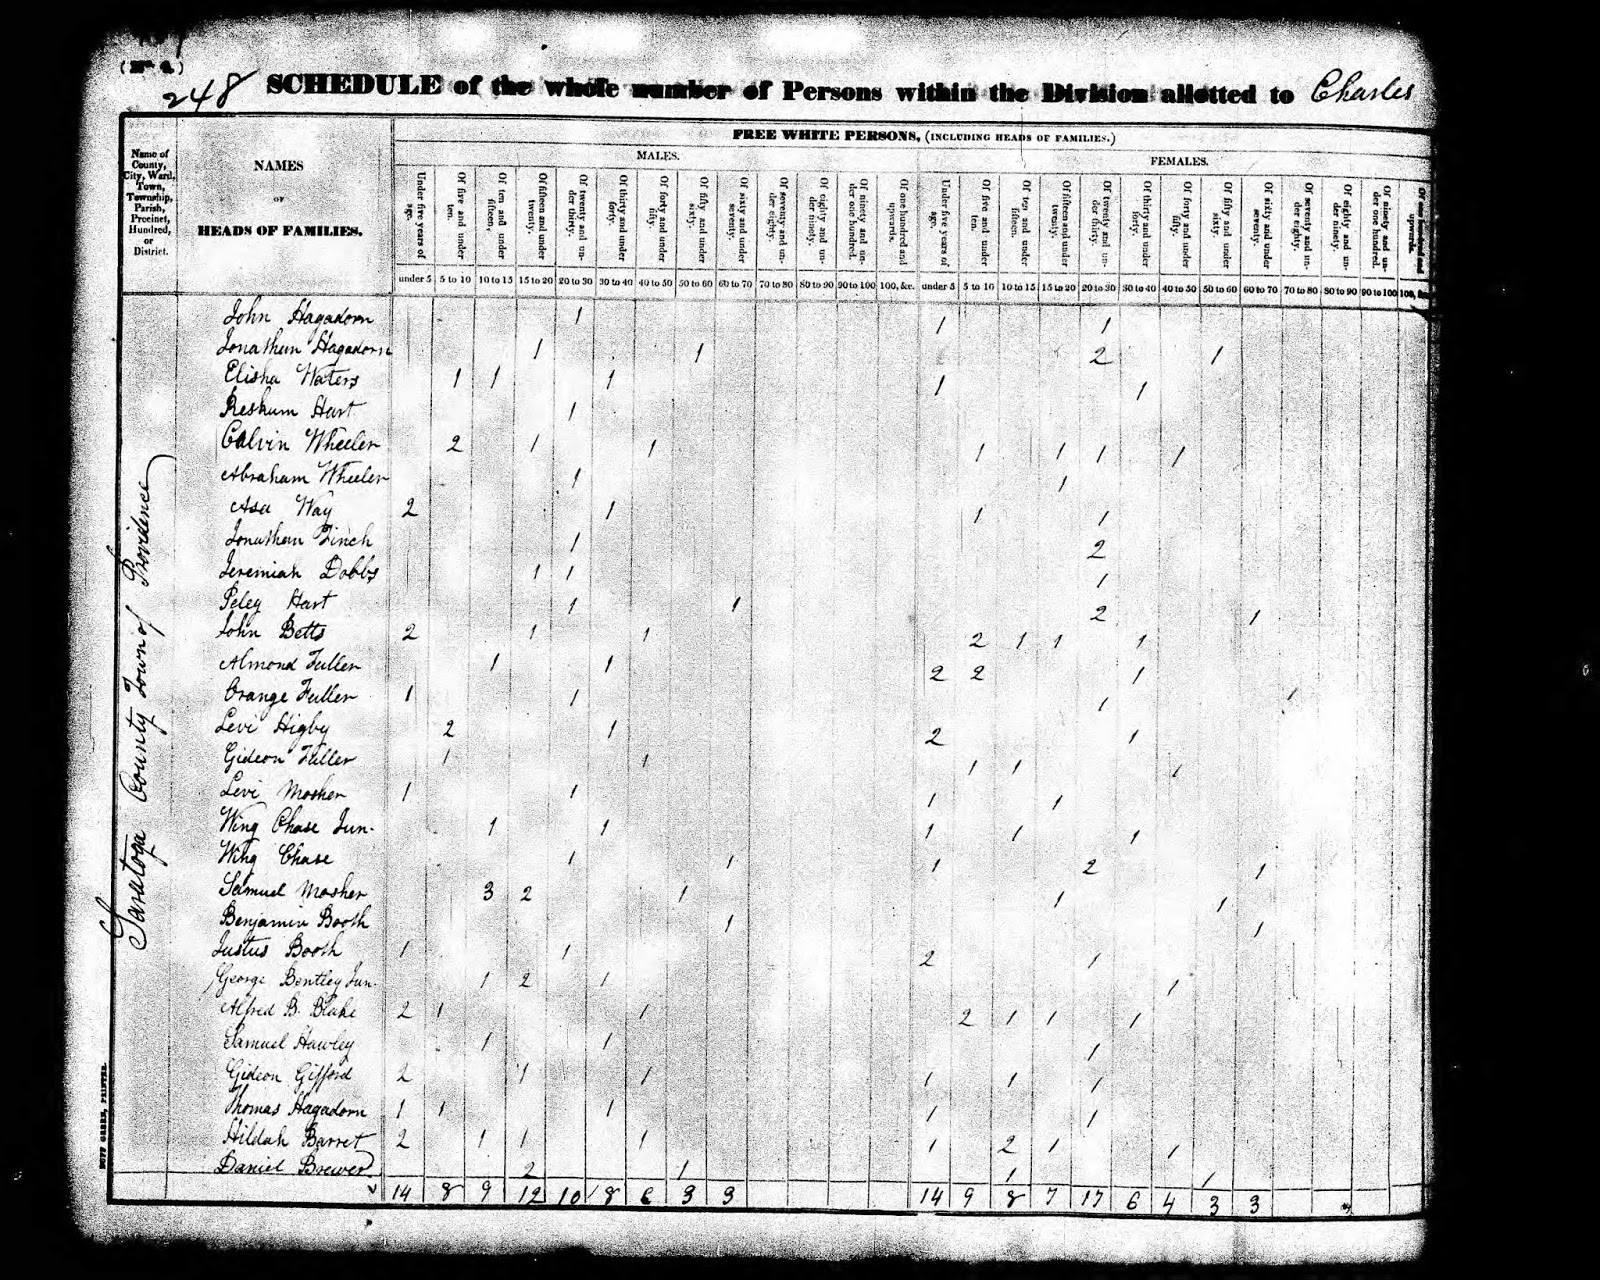 (No. 4.)
248 SCHEDULE of the whole number of Persons within the Division allotted to Charles
FREE WHITE PERSONS, (INCLUDING HEADS OF FAMILIES.)
MALES. FEMALES.
Name of County, City, Ward, Town, Township, Parish, Precinct, Hundred, or District.
NAMES
OF
HEADS OF FAMILIES.
Under five years of age. Of five and under ten. Of ten and under fifteen. Of fifteen and under twenty. Of twenty and under thirty. Of thirty and under forty. Of forty and under fifty. Of fifty and under sixty. Of sixty and under seventy. Of seventy and under eighty. Of eighty and under ninety. Of ninety and under one hundred. Of one hundred and upwards. Under five years of age. Of five and under ten. Of ten and under fifteen. Of fifteen and under twenty. Of twenty and under thirty. Of thirty and under forty. Of forty and under fifty. Of fifty and under sixty. Of sixty and under seventy. Of seventy and under eighty. Of eighty and under ninety. Of ninety and under one hundred. Of one hundred and upwards.
under 5 5 to 10 10 to 15 15 to 20 20 to 30 30 to 40 40 to 50 50 to 60 60 to 70 70 to 80 80 to 90 90 to 100 100, &c. under 5 5 to 10 10 to 15 15 to 20 20 to 30 30 to 40 40 to 50 50 to 60 60 to 70 70 to 80 80 to 90 90 to 100 100, &c.
Saratoga County Town of Providence
John Hagadorn 1 1 1
Jonathan Hagadorn 1 1 2 1
Elisha Waters 1 1 1 1 1
Hart 1
Calvin Wheeler 2 1 1 1 1 1 1
Abraham Wheeler 1 1
Asa Way 2 1 1 1
Jonathan Finch 1 2
Jeremiah Dobbs 1 1 1
Peleg Hart 1 1 2 1
John Betts 2 1 1 2 1 1 1
Almond Fuller 1 1 2 2 1
Orange Fuller 1 1 1
Levi Higby 2 1 2 1
Gideon Fuller 1 1 1 1 1
Levi Mosher 1 1 1 1
Wing Chase Jun. 1 1 1 1 1
Wing Chase 1 1 1 2 1
Samuel Mosher 3 2 1 1 1
Benjamin Booth 1 1
Justus Booth 1 1 2 1
George Bentley Jun. 1 2 1 1
Alfred B. Blake 2 1 1 2 1 1 1
Samuel Hawley 1 1 1
Gideon Gifford 2 1 1 1 1 1
Thomas Hagadorn 1 1 1 1 1
Hildah Barret 2 1 1 1 1 2 1 1
Daniel Brewer 2 1 1 1
14 8 9 12 10 8 6 3 3 14 9 8 7 17 6 4 3 3
DUFF GREEN, PRINTER.